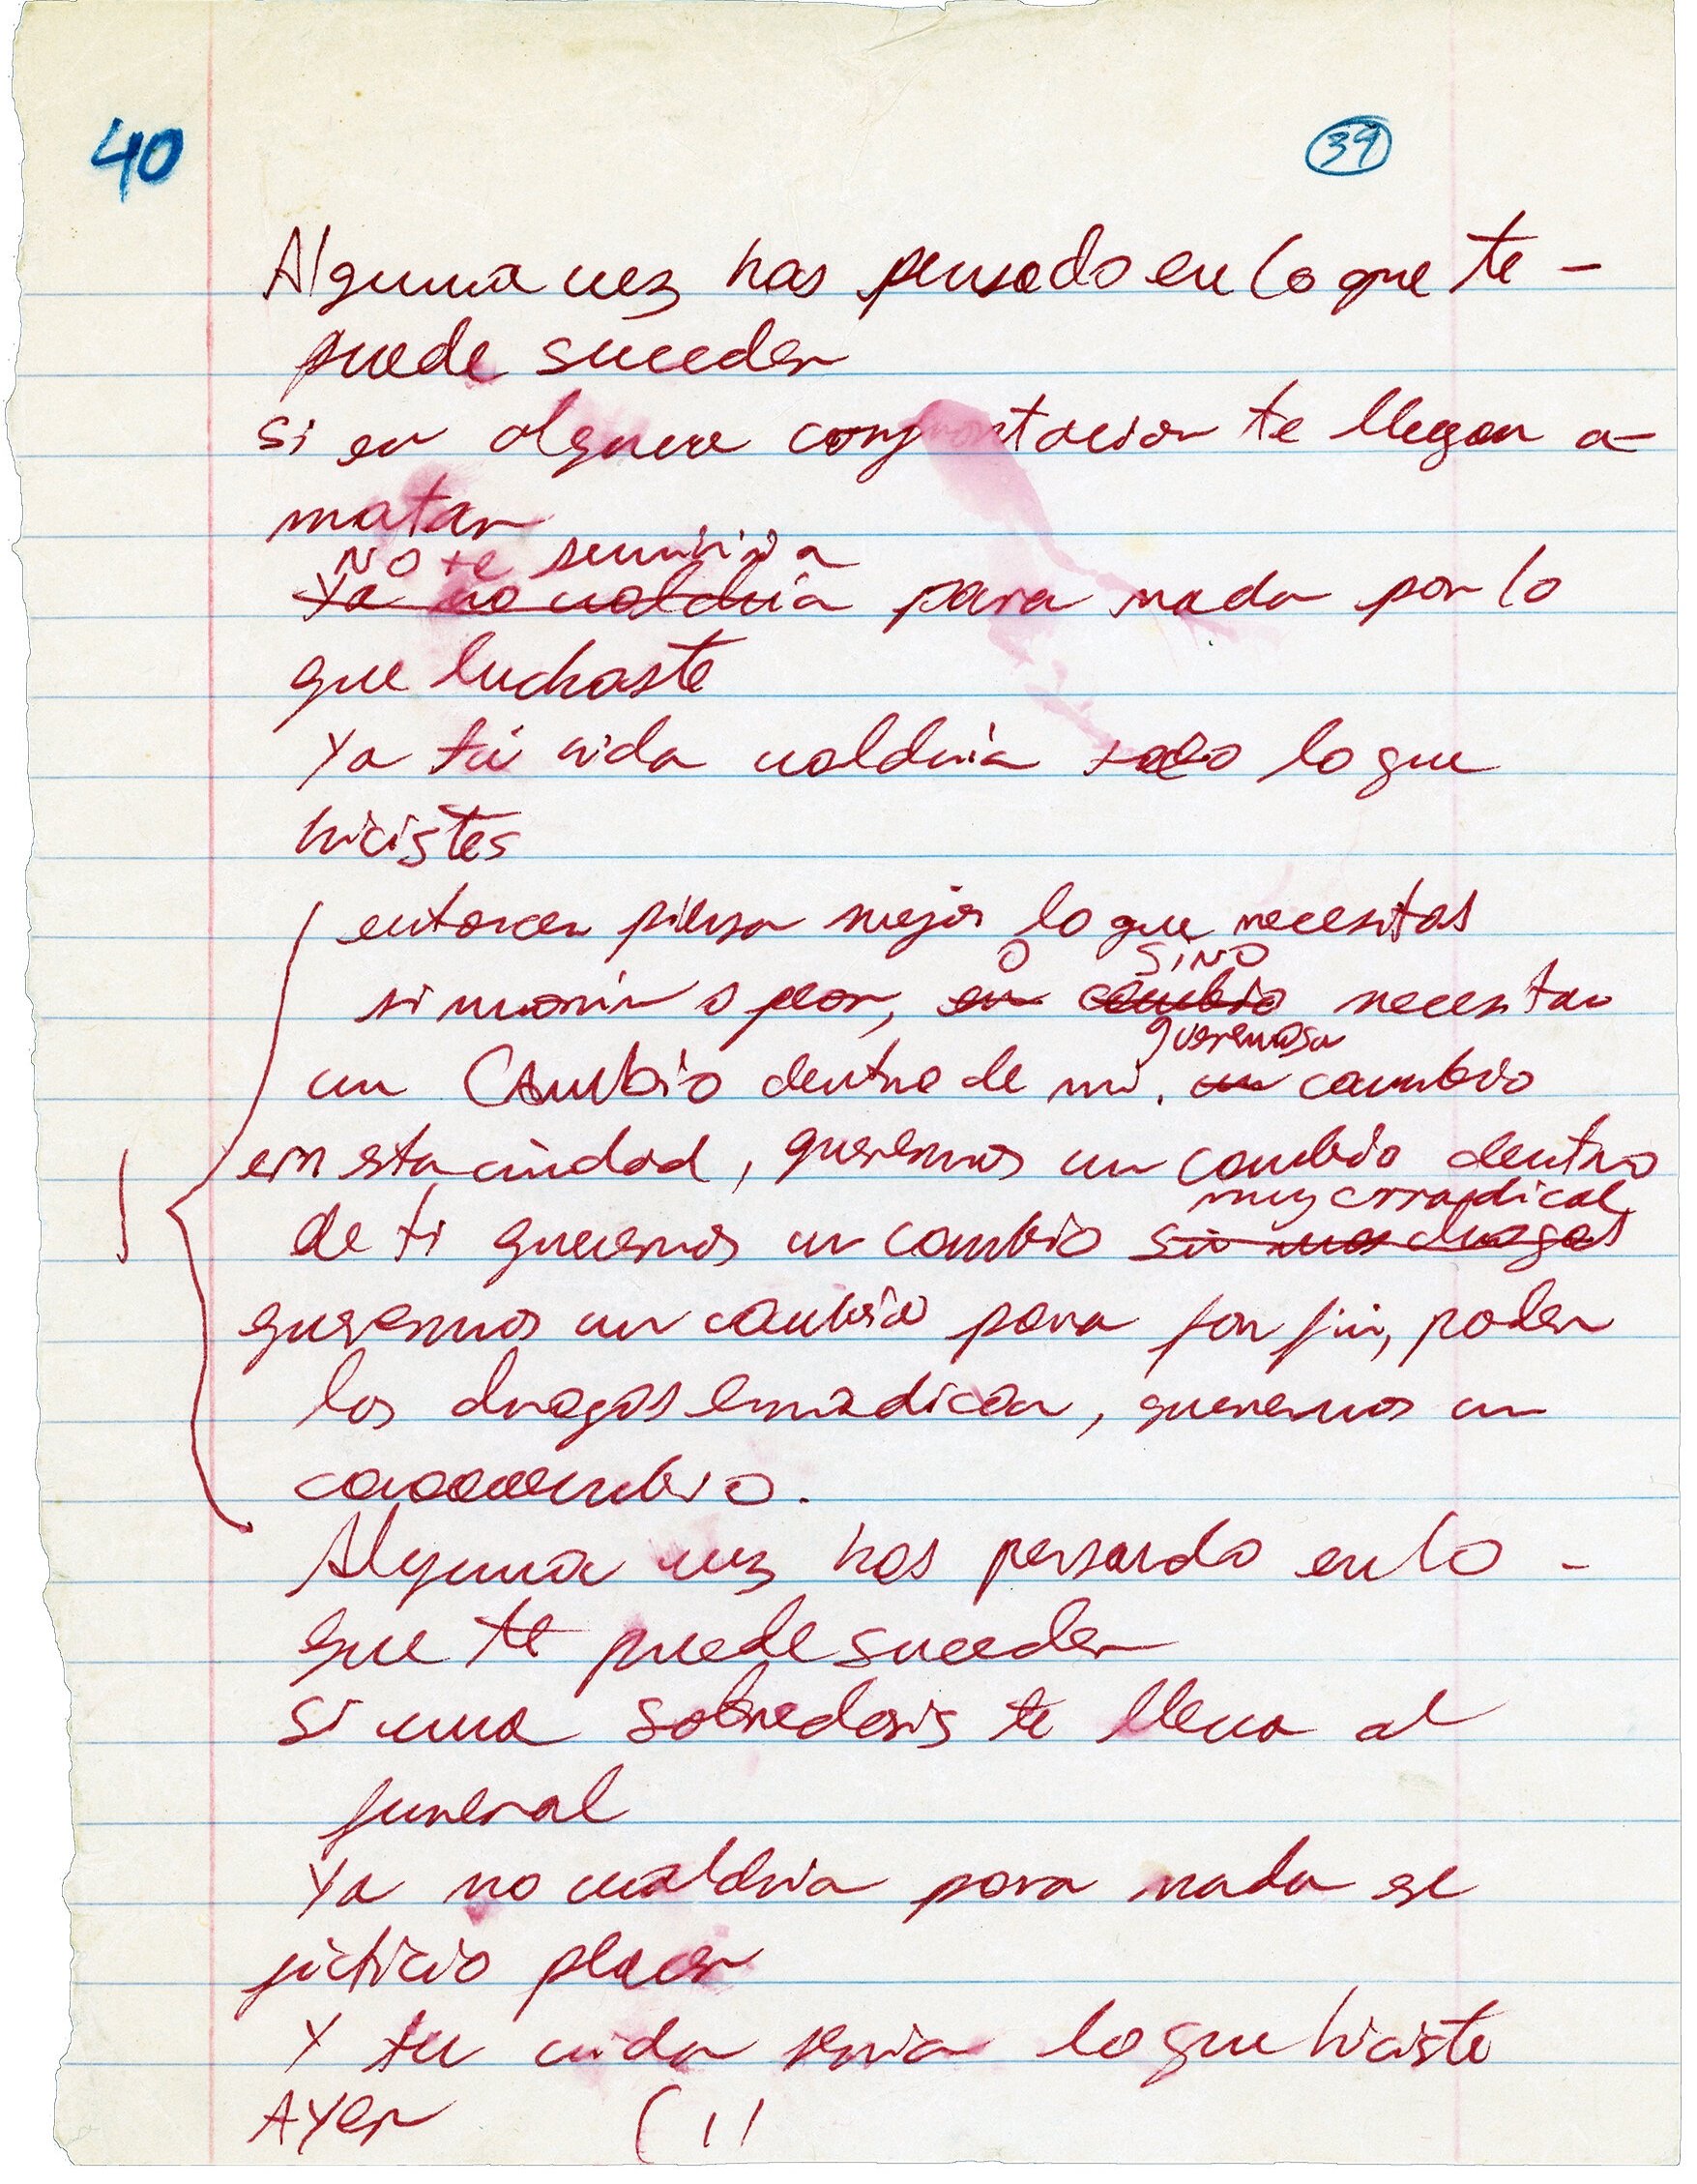 40
39
Alguna vez has pensado en lo que te -
puede suceder
si en alguna confrontacion te llegan a -
matar
No te serviria
Ya no valdria para nada por lo
que luchaste
Ya tú vida valdria solo lo que
hicistes
entonces piensa mejor lo que necesitas
o sino
si morir o peor, en cambio necesitas
queremosn
un Cambio dentro de mi, un cambio
em esta ciudad, queremos un cambio dentro
muy erradical
de ti queremos un cambio sin mas drogas
queremos un cambio para por fin, poder
las drogas erradicar, queremos un
caaaaambio.
Alguna vez has pensando en lo -
que te puede suceder
si una sobredosis te lleva al
funeral
Ya no valdria para nada ese
ficticio placer
Y tu vida seria lo que hiciste
AYer ( 11